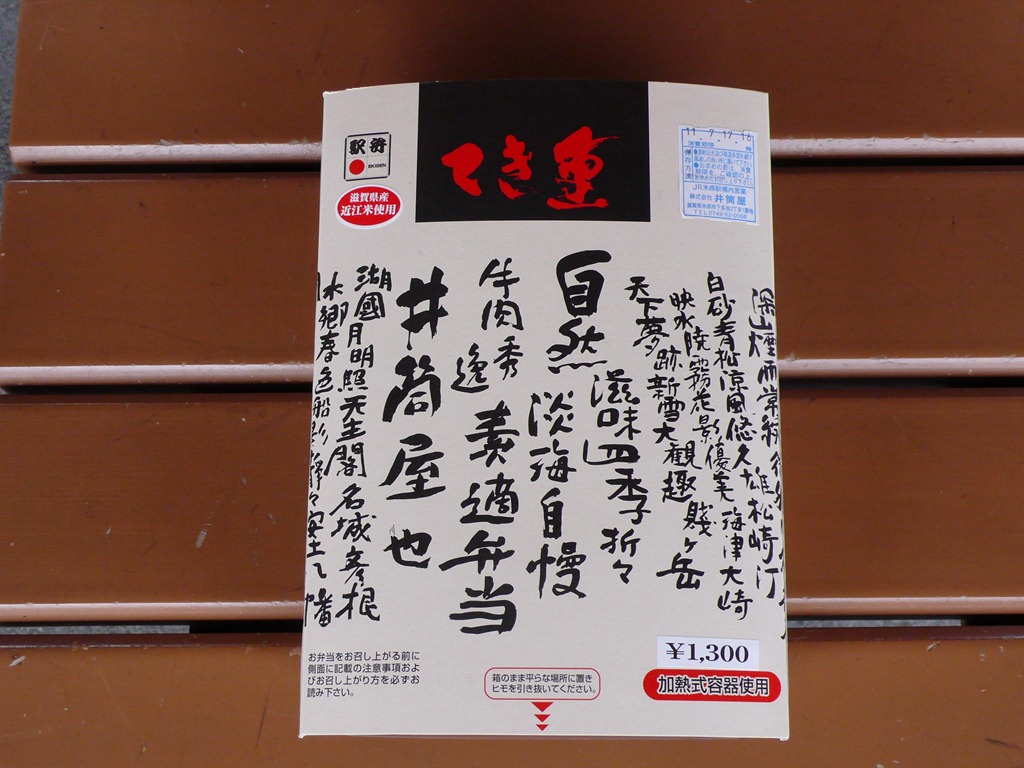 てき重
駅弁
EKIBEN
滋賀県産
近江米使用
11. 7.17.16
消費期限
JR米原駅構内営業
株式会社 井筒屋
TEL.0749-52-0006
深山煙雨
雄松崎汀
白砂青松涼風悠久
海津大崎
映水暁霧花影優美
賤ヶ岳
天下夢跡新雪大観趣
滋味四季折々
自然
淡海自慢
牛肉秀逸
素適弁当
井筒屋也
湖國月明照天主閣名城彦根
水郷春色船影静々安土八幡
お弁当をお召し上がる前に
側面に記載の注意事項およ
びお召し上がり方を必ずお
読み下さい。
箱のまま平らな場所に置き
ヒモを引き抜いてください。
¥1,300
加熱式容器使用